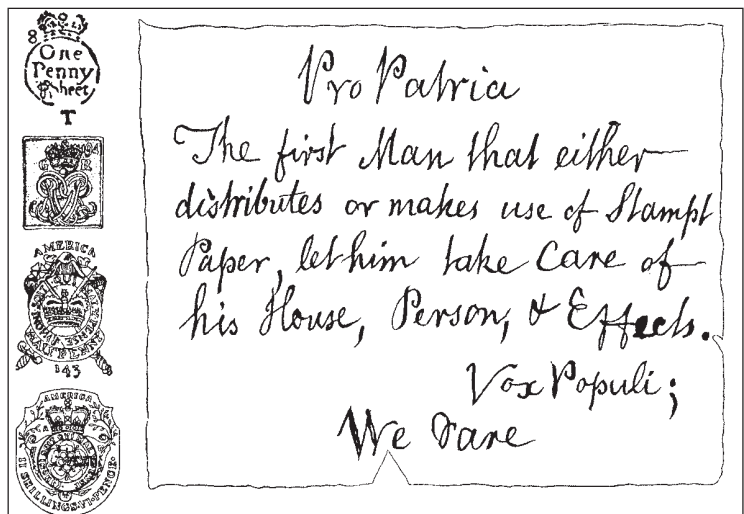 8
One
Penny
Sheet
T
94
G R
AMERICA
143
AMERICA
II SHILLINGS VI PENCE
Pro Patria
The first Man that either
distributes or makes use of Stampt
Paper, let him take Care of
his House, Person, & Effects.
Vox Populi;
We dare